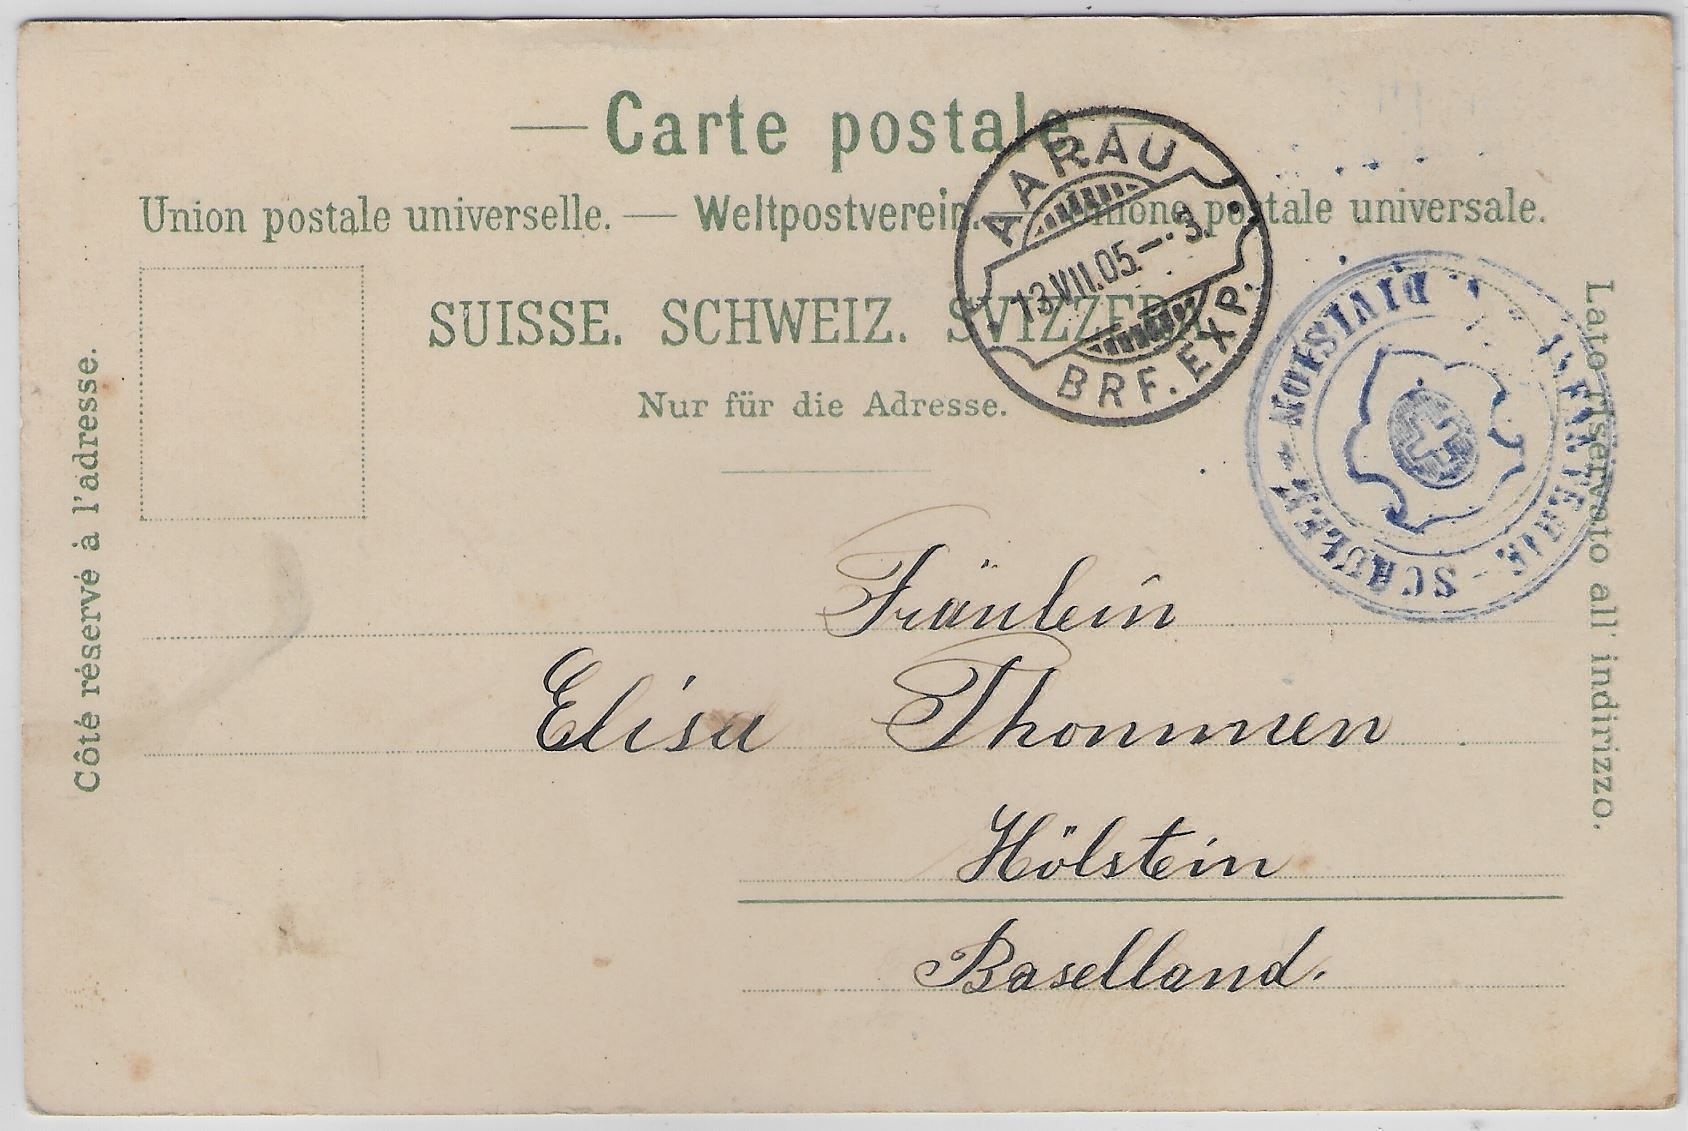 — Carte postale —
Union postale universelle. — Weltpostverein. — Unione postale universale.
SUISSE. SCHWEIZ. SVIZZERA.
Nur für die Adresse.
Côté réservé à l'adresse.
Lato riservato all' indirizzo.
AARAU
13.VII.05.–.3.
BRF. EXP.
INFANTERIE-SCHULEN
DIVISION
Fräulein
Elisa Thommen
Hölstein
Baselland.